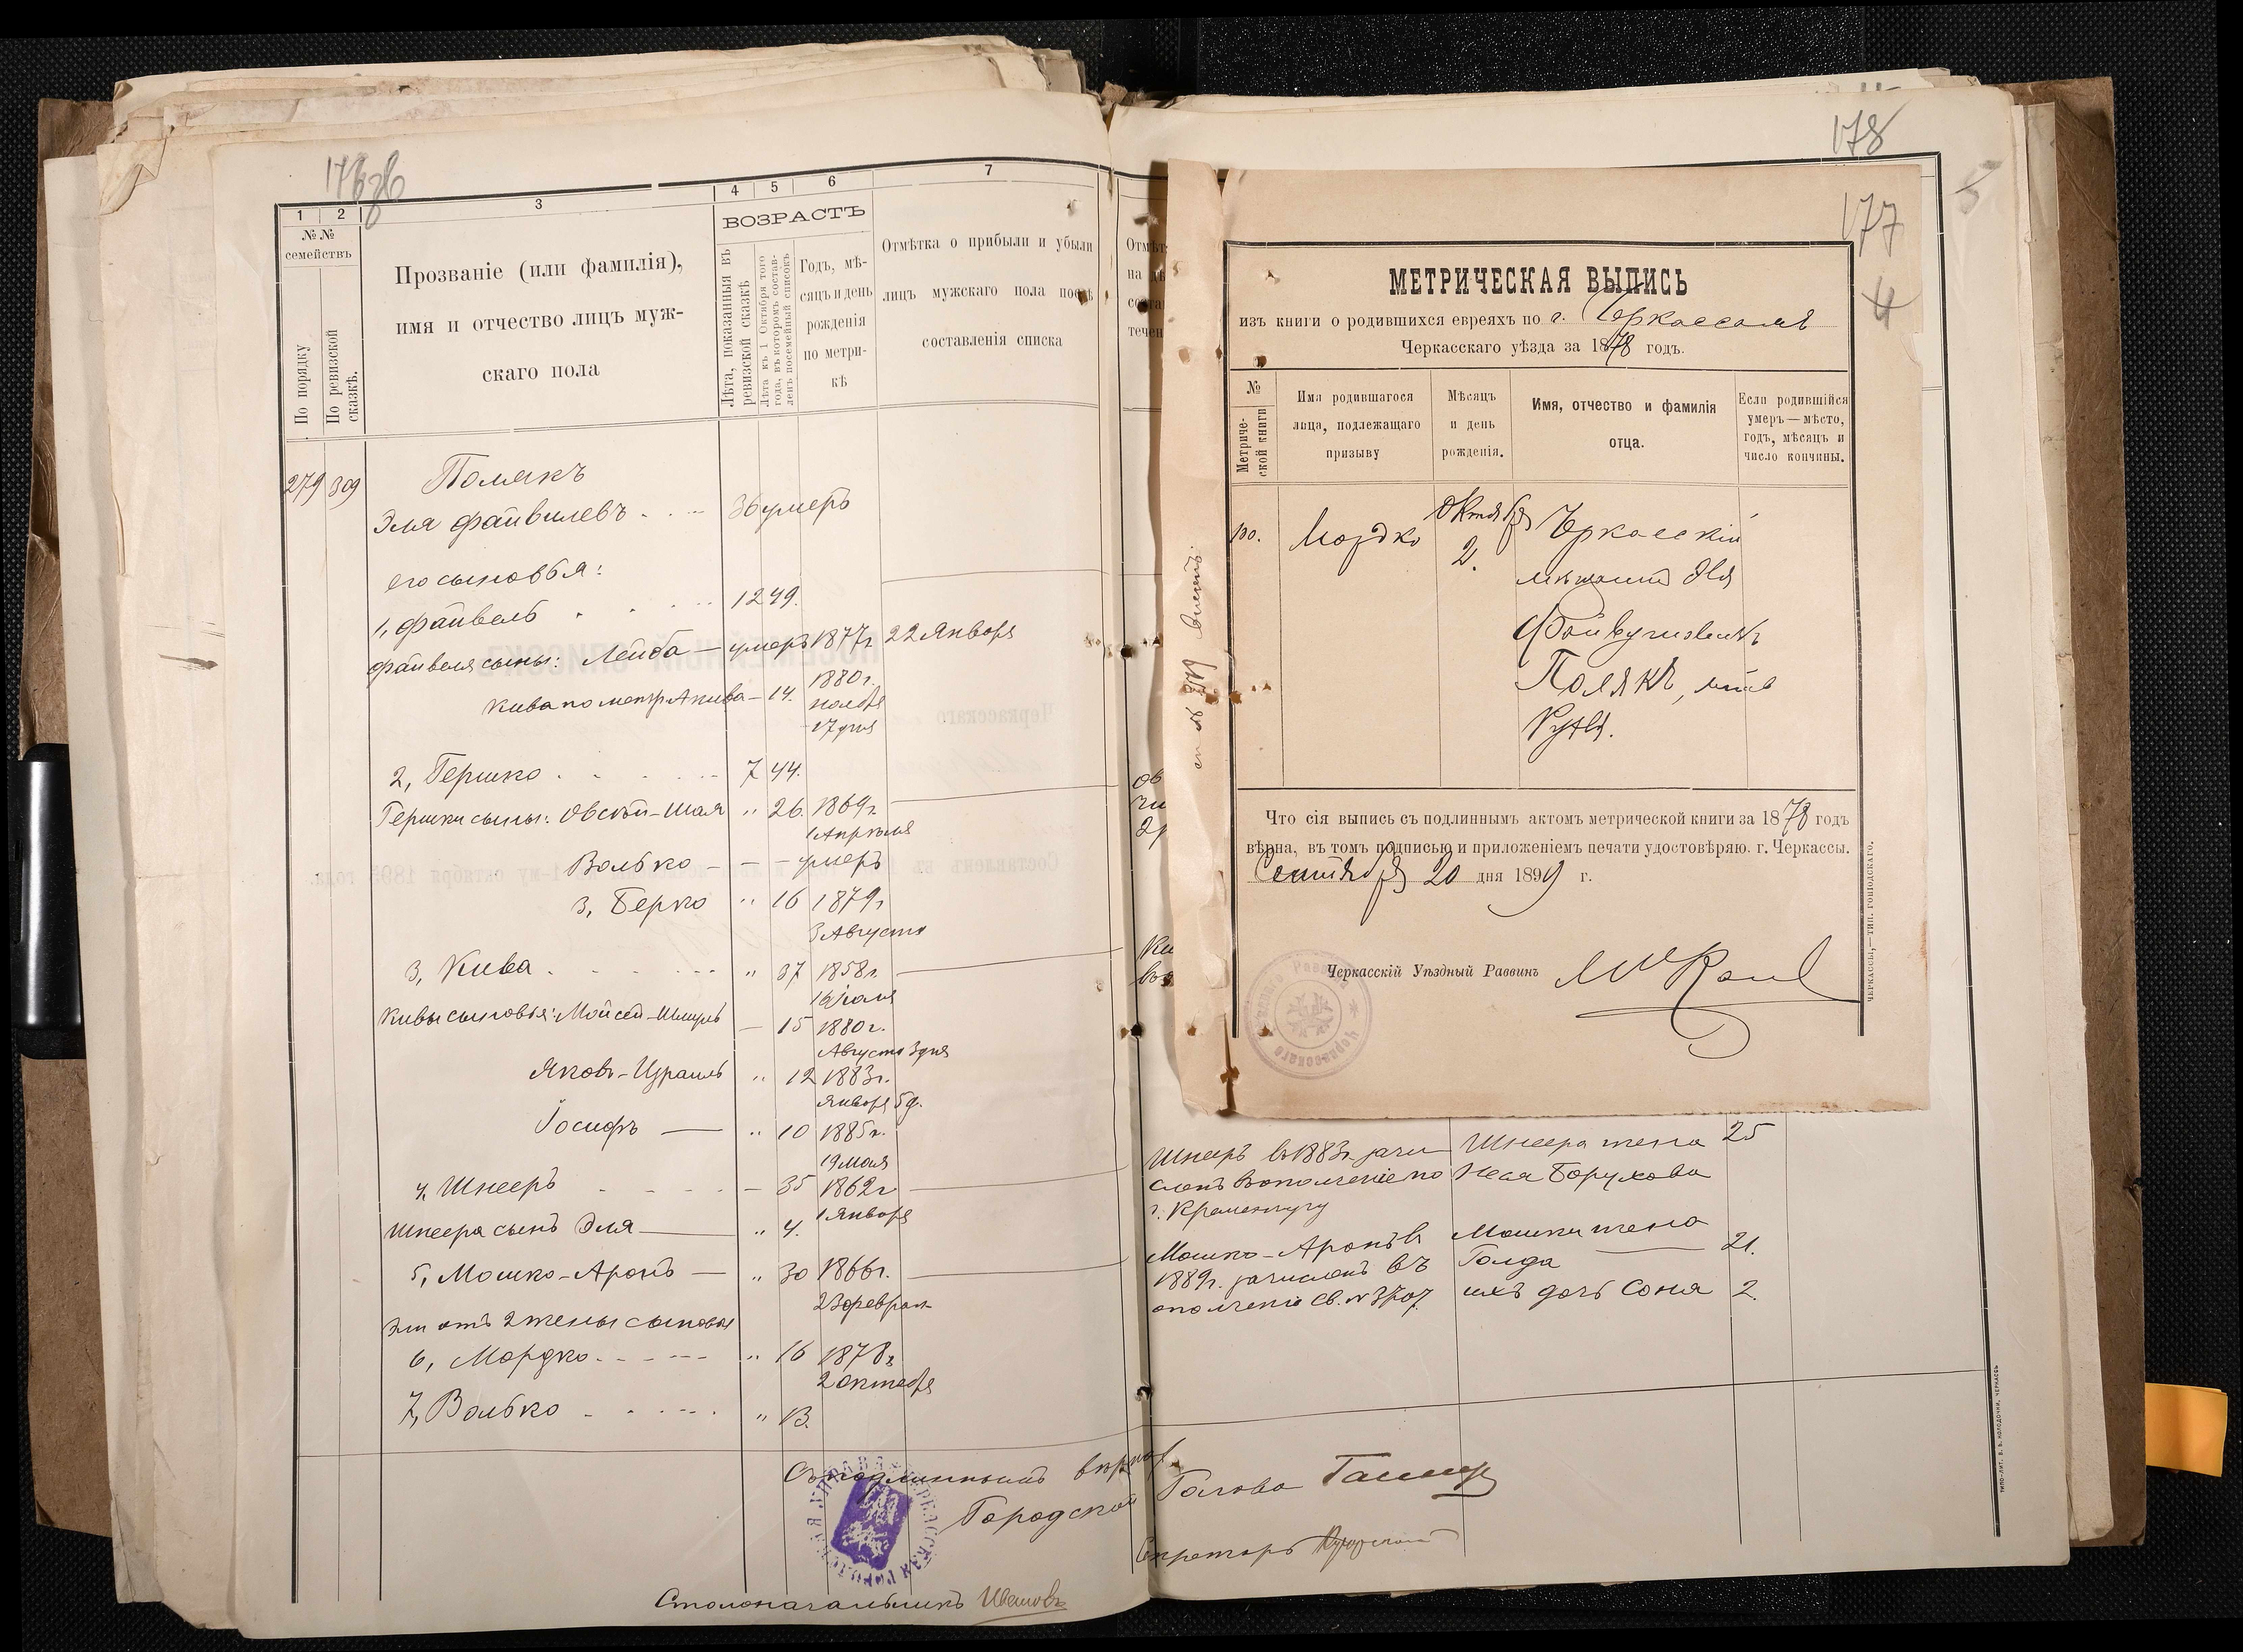 178
177
4
5
1 2 3 4 5 6 7
№№ семействъ
По порядку
По ревизской сказкѣ.
Прозваніе (или фамилія),
имя и отчество лицъ муж-
скаго пола
ВОЗРАСТЪ
Лѣта, показанныя въ ревизской сказкѣ
Лѣта къ 1 Октября того года, въ которомъ состав-ленъ посемейный списокъ
Годъ, мѣ-
сяцъ и день
рожденія
по метри-
кѣ
Отмѣтка о прибыли и убыли
лицъ мужскаго пола послѣ
составленія списка
279 309 Полякъ
Эля Файвилевъ 36 умеръ
его сыновья:
1, Файвель 12 49.
Файвеля сыны: Лейба — умеръ 1877 г. 22 Января
Кива по метр Акива — 14. 1880 г.
ноября
17 дня
2, Гершко 7 44.
Гершки сыны: Овсѣй-Шая " 26. 1869 г.
1 Апрѣля
Волько — — — умеръ
3, Берко " 16 1879 г
3 Августа
3, Кива " 37 1858 г.
Кивы сыновья: Мойсей-Шмуль — 15 1880 г.
Августа 3 дня
Яковъ-Израиль " 12 1883 г.
Января 5 д.
Іосифъ — " 10 1885 г.
19 мая
4, Шнееръ — 35 1862 г
1 Января
Шнеера сынъ Эля — " 4.
5, Мошко-Аронъ — " 30 1866 г.
23 февраля
Эли отъ 2 жены сыновья
6, Мордко " 16 1878 г
2 октября
7, Волько " 13.
Шнееръ въ 1883 г. зачи-
сленъ въ ополченіе по
г. Кременчугу
Шнеера жена 25
Неся Борухова
Мошко-Аронъ въ
1889 г. зачисленъ въ
ополченіе св. №
Мошки жена
Голда 21.
ихъ дочь Соня 2.
Съ подлиннымъ вѣрно
Городской Голова
Секретарь
Столоначальникъ
МЕТРИЧЕСКАЯ ВЫПИСЬ
изъ книги о родившихся евреяхъ по г. Черкассамъ
Черкасскаго уѣзда за 1878 годъ.
№
Метриче-
ской книги
Имя родившагося
лица, подлежащаго
призыву
Мѣсяцъ
и день
рожденія.
Имя, отчество и фамилія
отца.
Если родившійся
умеръ — мѣсто,
годъ, мѣсяцъ и
число кончины.
Мордко
Октября
2.
Черкасскій
мѣщанинъ Эля
Файвушовичъ
Полякъ, мать
Рухля.
Что сія выпись съ подлиннымъ актомъ метрической книги за 1878 годъ
вѣрна, въ томъ подписью и приложеніемъ печати удостовѣряю. г. Черкассы.
Сентября 20 дня 1899 г.
Черкасскій Уѣздный Раввинъ
ЧЕРКАССЫ,—ТИП. ГОНПОДСКАГО.
ТИПО-ЛИТ. В. В. КОЛОДОЧКИ. ЧЕРКАССЫ